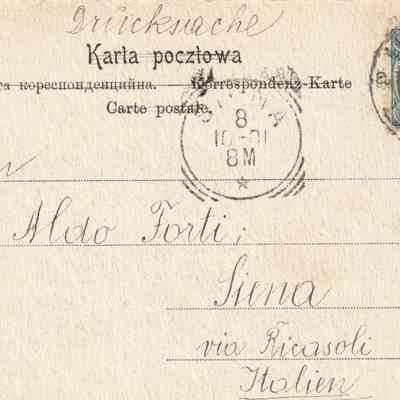 Drucksache
Karta pocztowa
та кореспонденцийна. — Korrespondenz-Karte
Carte postale.
SIENA
8
10-01
8M
Aldo Forti;
Siena
via Ricasoli
Italien